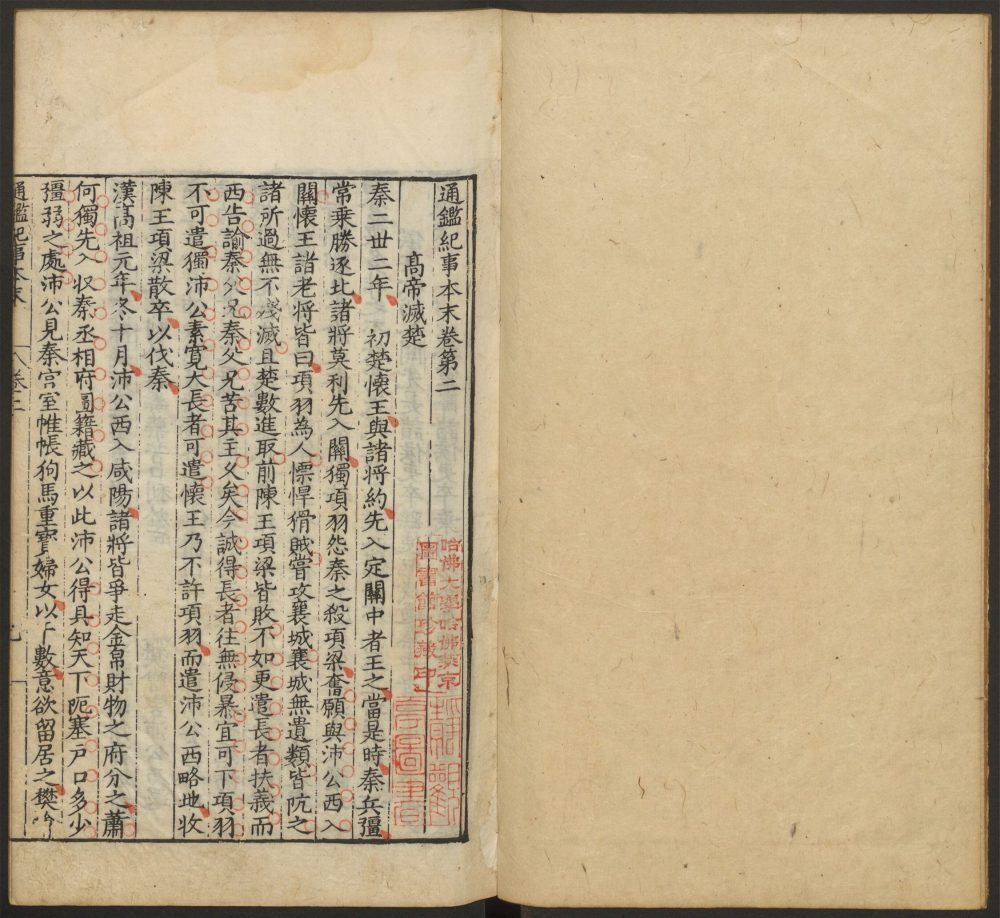 通鑑紀事本末卷第二
高帝滅楚
秦二世二年 初楚懷王與諸將約先入定關中者王之當是時秦兵彊
常乗勝逐北諸將莫利先入關獨項羽怨秦之殺項梁奮願與沛公西入
關懷王諸老將皆曰項羽為人慓悍猾賊嘗攻襄城襄城無遺類皆阬之
諸所過無不殘滅且楚數進取前陳王項梁皆敗不如更遣長者扶義而
西告諭秦父兄秦父兄苦其主久矣今誠得長者往無侵暴宜可下項羽
不可遣獨沛公素寛大長者可遣懷王乃不許項羽而遣沛公西略地收
陳王項梁散卒以伐秦
漢高祖元年冬十月沛公西入咸陽諸將皆爭走金帛財物之府分之蕭
何獨先入収秦丞相府圖籍藏之以此沛公得具知天下阨塞戸口多少
彊弱之處沛公見秦宫室帷帳狗馬重寳婦女以千數意欲留居之樊
通鑑紀事本末
哈佛大學哈佛燕京
圖書館珍藏印